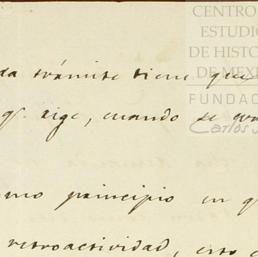 CENTRO
ESTUDIO
DE HISTO
DE MEXI
FUNDAC
Carlos
da trámite tiene que
qᵉ. rige, cuando se
mo principio en q
retroactividad, esto